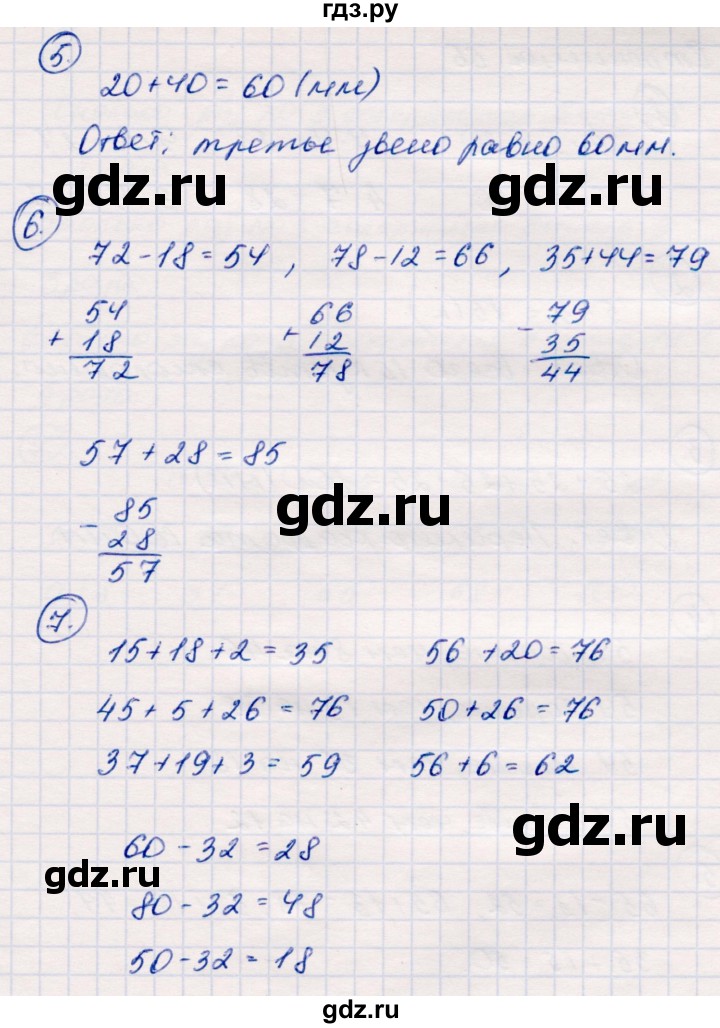 гдз.ру
5.
20+40=60 (мм)
Ответ: третье звено равно 60мм.
gdz.ru gdz.ru
6.
72-18=54, 78-12=66, 35+44=79
54 66 79
+ 18 + 12 - 35
72 78 44
57+28=85
gdz.ru
- 85
28
57
7.
15+18+2=35 56+20=76
45+5+26=76 50+26=76
37+19+3=59 56+6=62
gdz.ru
60-32=28
gdz.ru
80-32=48
50-32=18
gdz.ru